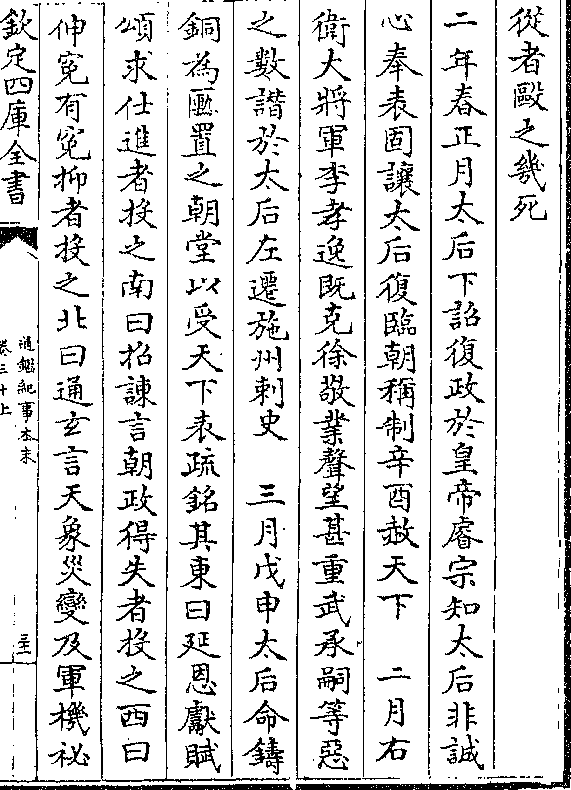 從者毆之幾死
二年春正月太后下詔復政於皇帝睿宗知太后非誠
心奉表固讓太后復臨朝稱制辛酉赦天下　二月右
衛大將軍李孝逸既克徐敬業聲望甚重武承嗣等惡
之數譖於太后左遷施州刺史　三月戊申太后命鑄
銅為匭置之朝堂以受天下表疏銘其東曰延恩獻賦
頌求仕進者投之南曰招諫言朝政得失者投之西曰
伸冤有冤抑者投之北曰通玄言天象災變及軍機祕
欽定四庫全書
通鑑紀事本末
卷三十上